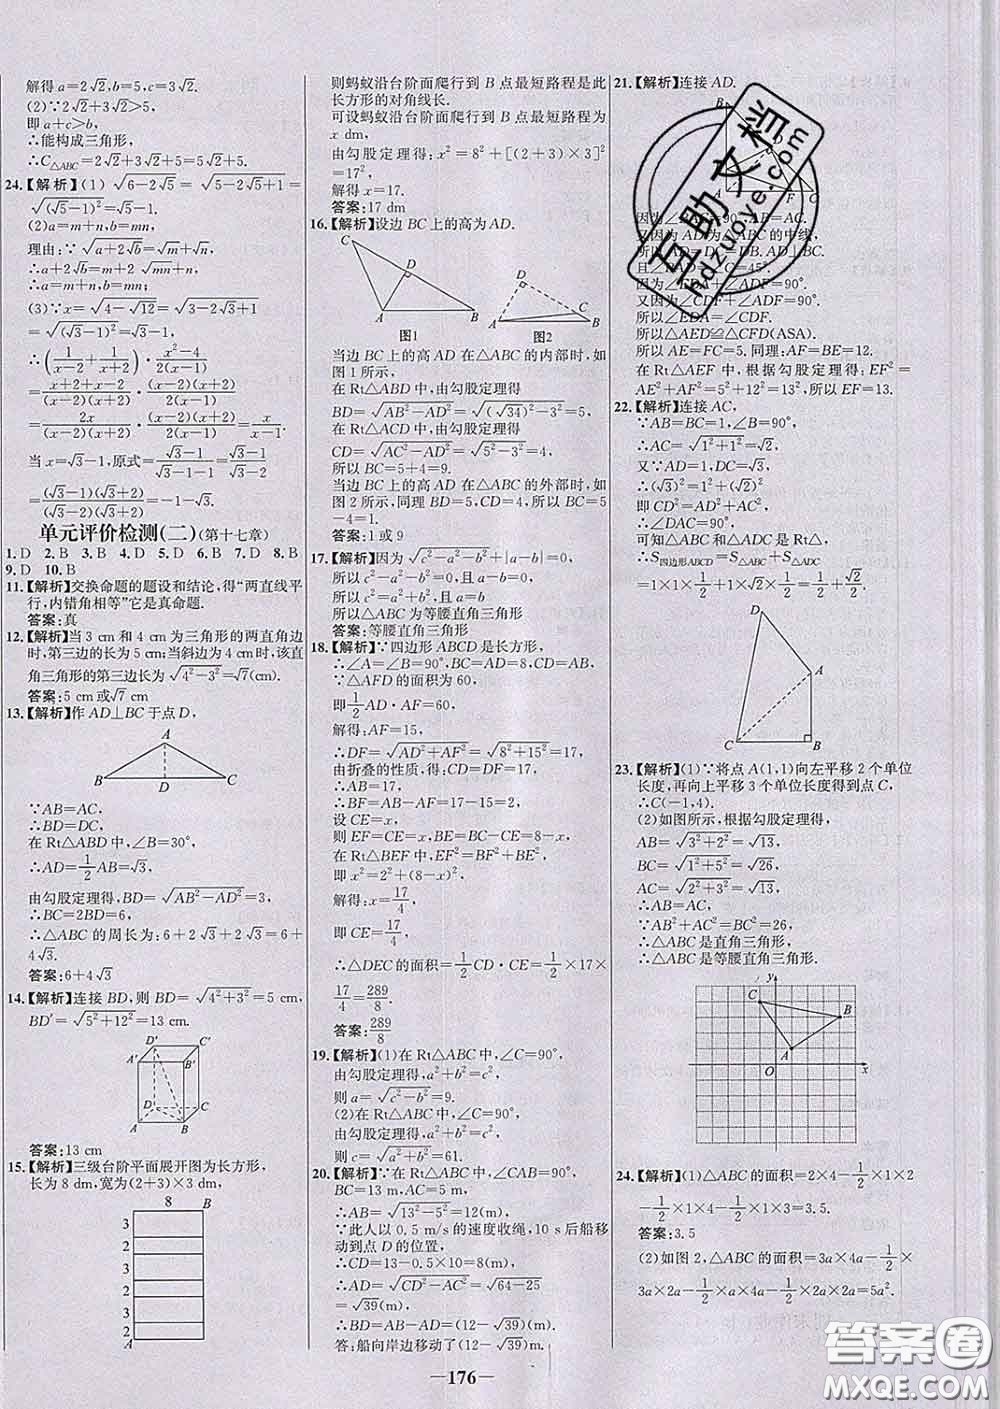 解得 a=2√2,b=5,c=3√2.
(2)∵2√2+3√2>5,
即 a+c>b,
∴能构成三角形,
∴C△ABC=2√2+3√2+5=5√2+5.
24.【解析】(1) √(6-2√5) = √(5-2√5+1) =
√((√5-1)²)=√5-1.
(2)a=m+n,b=mn,
理由:∵√(a+2√b)=√m+√n,
∴a+2√b=m+2√mn+n,
∴a=m+n,b=mn.
(3)∵x=√(4-√12)=√(3-2√3+1)
=√((√3-1)²)=√3-1,
∴(1/(x-2)+1/(x+2))·(x²-4)/(2(x-1))
=(x+2+x-2)/((x-2)(x+2))·((x-2)(x+2))/(2(x-1))
=2x/((x-2)(x+2))·((x-2)(x+2))/(2(x-1))=x/(x-1).
当 x=√3-1,原式=(√3-1)/(√3-1-1)=(√3-1)/(√3-2)
=(√3-1)(√3+2)/((√3-2)(√3+2))=-1-√3.
单元评价检测(二)(第十七章)
1. D 2. B 3. B 4. D 5. D 6. B 7. D 8. B
9. D 10. B
11.【解析】交换命题的题设和结论,得“两直线平
行,内错角相等”它是真命题.
答案:真
12.【解析】当 3 cm 和 4 cm 为三角形的两直角边
时,第三边的长为 5 cm;当斜边为 4 cm 时,该直
角三角形的第三边长为 √(4²-3²)=√7(cm).
答案:5 cm 或√7 cm
13.【解析】作 AD⊥BC 于点 D,
A
B D C
∵AB=AC,
∴BD=DC,
在 Rt△ABD 中,∠B=30°,
∴AD=1/2 AB=√3,
由勾股定理得,BD=√(AB²-AD²)=3,
∴BC=2BD=6,
∴△ABC 的周长为:6+2√3+2√3=6+
4√3.
答案:6+4√3
14.【解析】连接 BD,则 BD=√(4²+3²)=5 cm,
BD′=√(5²+12²)=13 cm.
D′ C′
A′ B′
D C
A B
答案:13 cm
15.【解析】三级台阶平面展开图为长方形,
长为 8 dm,宽为(2+3)×3 dm,
8 B
3
2
3
2
3
2
A
则蚂蚁沿台阶面爬行到 B 点最短路程是此
长方形的对角线长.
可设蚂蚁沿台阶面爬行到 B 点最短路程为
x dm,
由勾股定理得:x²=8²+[(2+3)×3]²
=17²,
解得 x=17.
答案:17 dm
16.【解析】设边 BC 上的高为 AD.
C D A B D C A B
图1 图2
当边 BC 上的高 AD 在△ABC 的内部时,如
图 1 所示,
在 Rt△ABD 中,由勾股定理得
BD=√(AB²-AD²)=√((√34)²-3²)=5,
在 Rt△ACD 中,由勾股定理得
CD=√(AC²-AD²)=√(5²-3²)=4,
所以 BC=5+4=9.
当边 BC 上的高 AD 在△ABC 的外部时,如
图 2 所示,同理 BD=5,CD=4,所以 BC=5
-4=1.
答案:1 或 9
17.【解析】因为 √(c²-a²-b²)+|a-b|=0,
所以 c²-a²-b²=0,a-b=0,
所以 c²=a²+b²,a=b,
所以△ABC 为等腰直角三角形
答案:等腰直角三角形
18.【解析】∵四边形 ABCD 是长方形,
∴∠A=∠B=90°,BC=AD=8,CD=AB,
∵△AFD 的面积为 60,
即1/2 AD·AF=60,
解得:AF=15,
∴DF=√(AD²+AF²)=√(8²+15²)=17,
由折叠的性质,得:CD=DF=17,
∴AB=17,
∴BF=AB-AF=17-15=2,
设 CE=x,
则 EF=CE=x,BE=BC-CE=8-x,
在 Rt△BEF 中,EF²=BF²+BE²,
即 x²=2²+(8-x)²,
解得:x=17/4,
即 CE=17/4,
∴△DEC 的面积=1/2 CD·CE=1/2×17×
17/4=289/8.
答案:289/8
19.【解析】(1)在 Rt△ABC 中,∠C=90°,
由勾股定理得,a²+b²=c²,
则 a=√(c²-b²)=9.
(2)在 Rt△ABC 中,∠C=90°,
由勾股定理得,a²+b²=c²,
则 c=√(a²+b²)=61.
20.【解析】∵在 Rt△ABC 中,∠CAB=90°,
BC=13 m,AC=5 m,
∴AB=√(13²-5²)=12(m),
∵此人以 0.5 m/s 的速度收绳,10 s 后船移
动到点 D 的位置,
∴CD=13-0.5×10=8(m),
∴AD=√(CD²-AC²)=√(64-25)=
√39(m),
∴BD=AB-AD=(12-√39)(m),
答:船向岸边移动了(12-√39)m.
21.【解析】连接 AD.
因为∠BAC=90°,AB=AC.
又因为 AD 为△ABC 的中线,
所以 AD=DC=DB.AD⊥BC.
且∠BAD=∠C=45°.
因为∠EDA+∠ADF=90°.
又因为∠CDF+∠ADF=90°.
所以∠EDA=∠CDF.
所以△AED≌△CFD(ASA).
所以 AE=FC=5.同理:AF=BE=12.
在 Rt△AEF 中,根据勾股定理得:EF²=
AE²+AF²=5²+12²=13²,所以 EF=13.
22.【解析】连接 AC,
∵AB=BC=1,∠B=90°,
∴AC=√(1²+1²)=√2,
又∵AD=1,DC=√3,
∴(√3)²=1²+(√2)²,
即 CD²=AD²+AC²,
∴∠DAC=90°,
可知△ABC 和△ADC 是 Rt△,
∴S四边形ABCD=S△ABC+S△ADC
=1×1×1/2+1×√2×1/2=1/2+√2/2.
D
A
C B
23.【解析】(1)∵将点 A(1,1)向左平移 2 个单位
长度,再向上平移 3 个单位长度得到点 C,
∴C(-1,4).
(2)如图所示,根据勾股定理得,
AB=√(3²+2²)=√13,
BC=√(1²+5²)=√26,
AC=√(2²+3²)=√13,
∴AB=AC,
∵AB²+AC²=BC²=26,
∴△ABC 是直角三角形,
∴△ABC 是等腰直角三角形.
y
C B
A
O x
24.【解析】(1)△ABC 的面积=2×4-1/2×1×2
-1/2×1×4-1/2×1×3=3.5.
答案:3.5
(2)如图 2,△ABC 的面积=3a×4a-1/2×
3a×2a-1/2×a×4a-1/2×2a×2a=5a².
— 176 —
互助文档
hdzuoye.com
答案圈
MXQE.COM